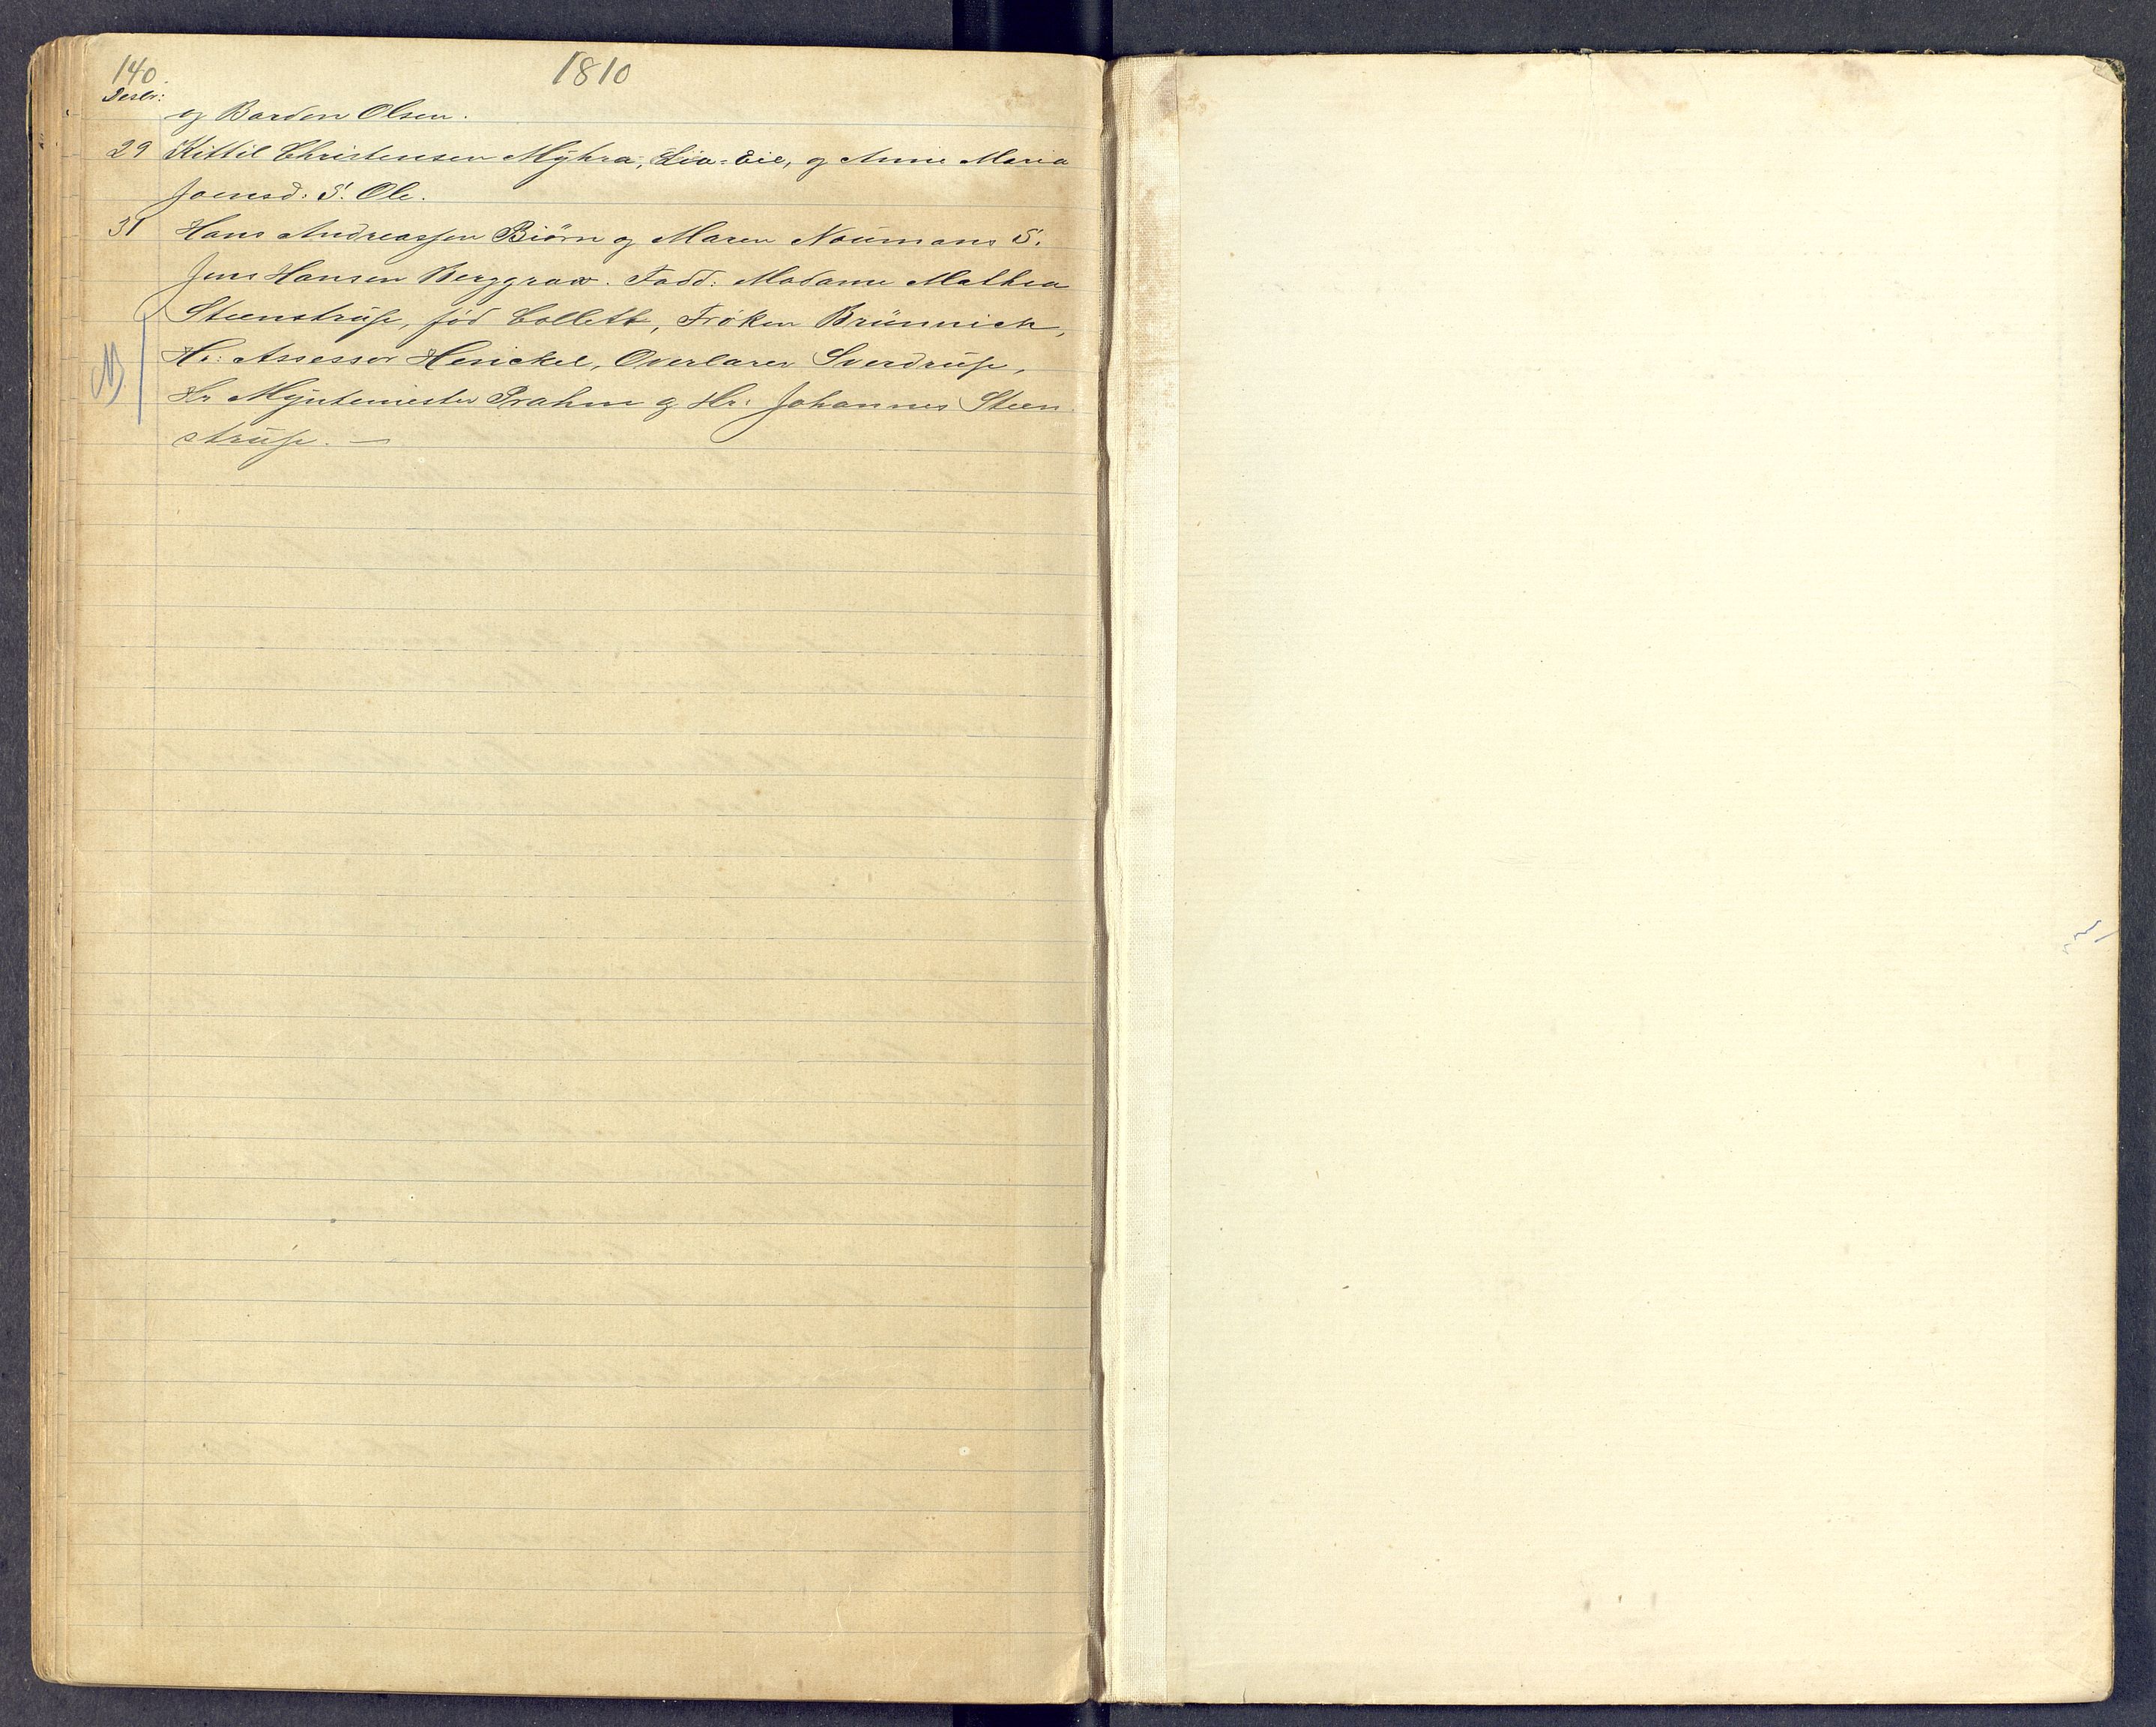 140.
1810
Desbr:
og Barden Olsen.
29 Kittil Christensen Myhra, Lia=Eie, og Anne Maria
Joensd: S. Ole.
31 Hans Andreassen Biørn og Maren Noumans S.
Jens Hansen Berggrav. Fadd: Madame Mathea
Steenstrup, fød Collett, Frøken Brünnich,
Hr: Assessor Henckel, Overlærer Sverdrup,
Hr Myntemester Prahm og Hr: Johannes Steen
strup. —